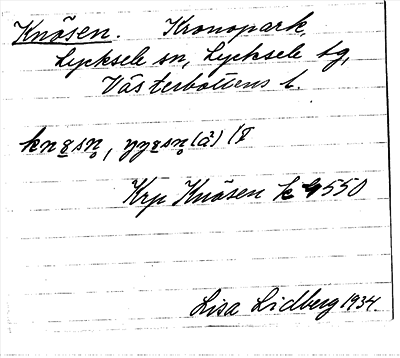 Knösen. Kronopark,
Lycksele sn, Lycksele tg,
Västerbottens l.
Krp Knösen k 4550
Lisa Lidberg 1934.